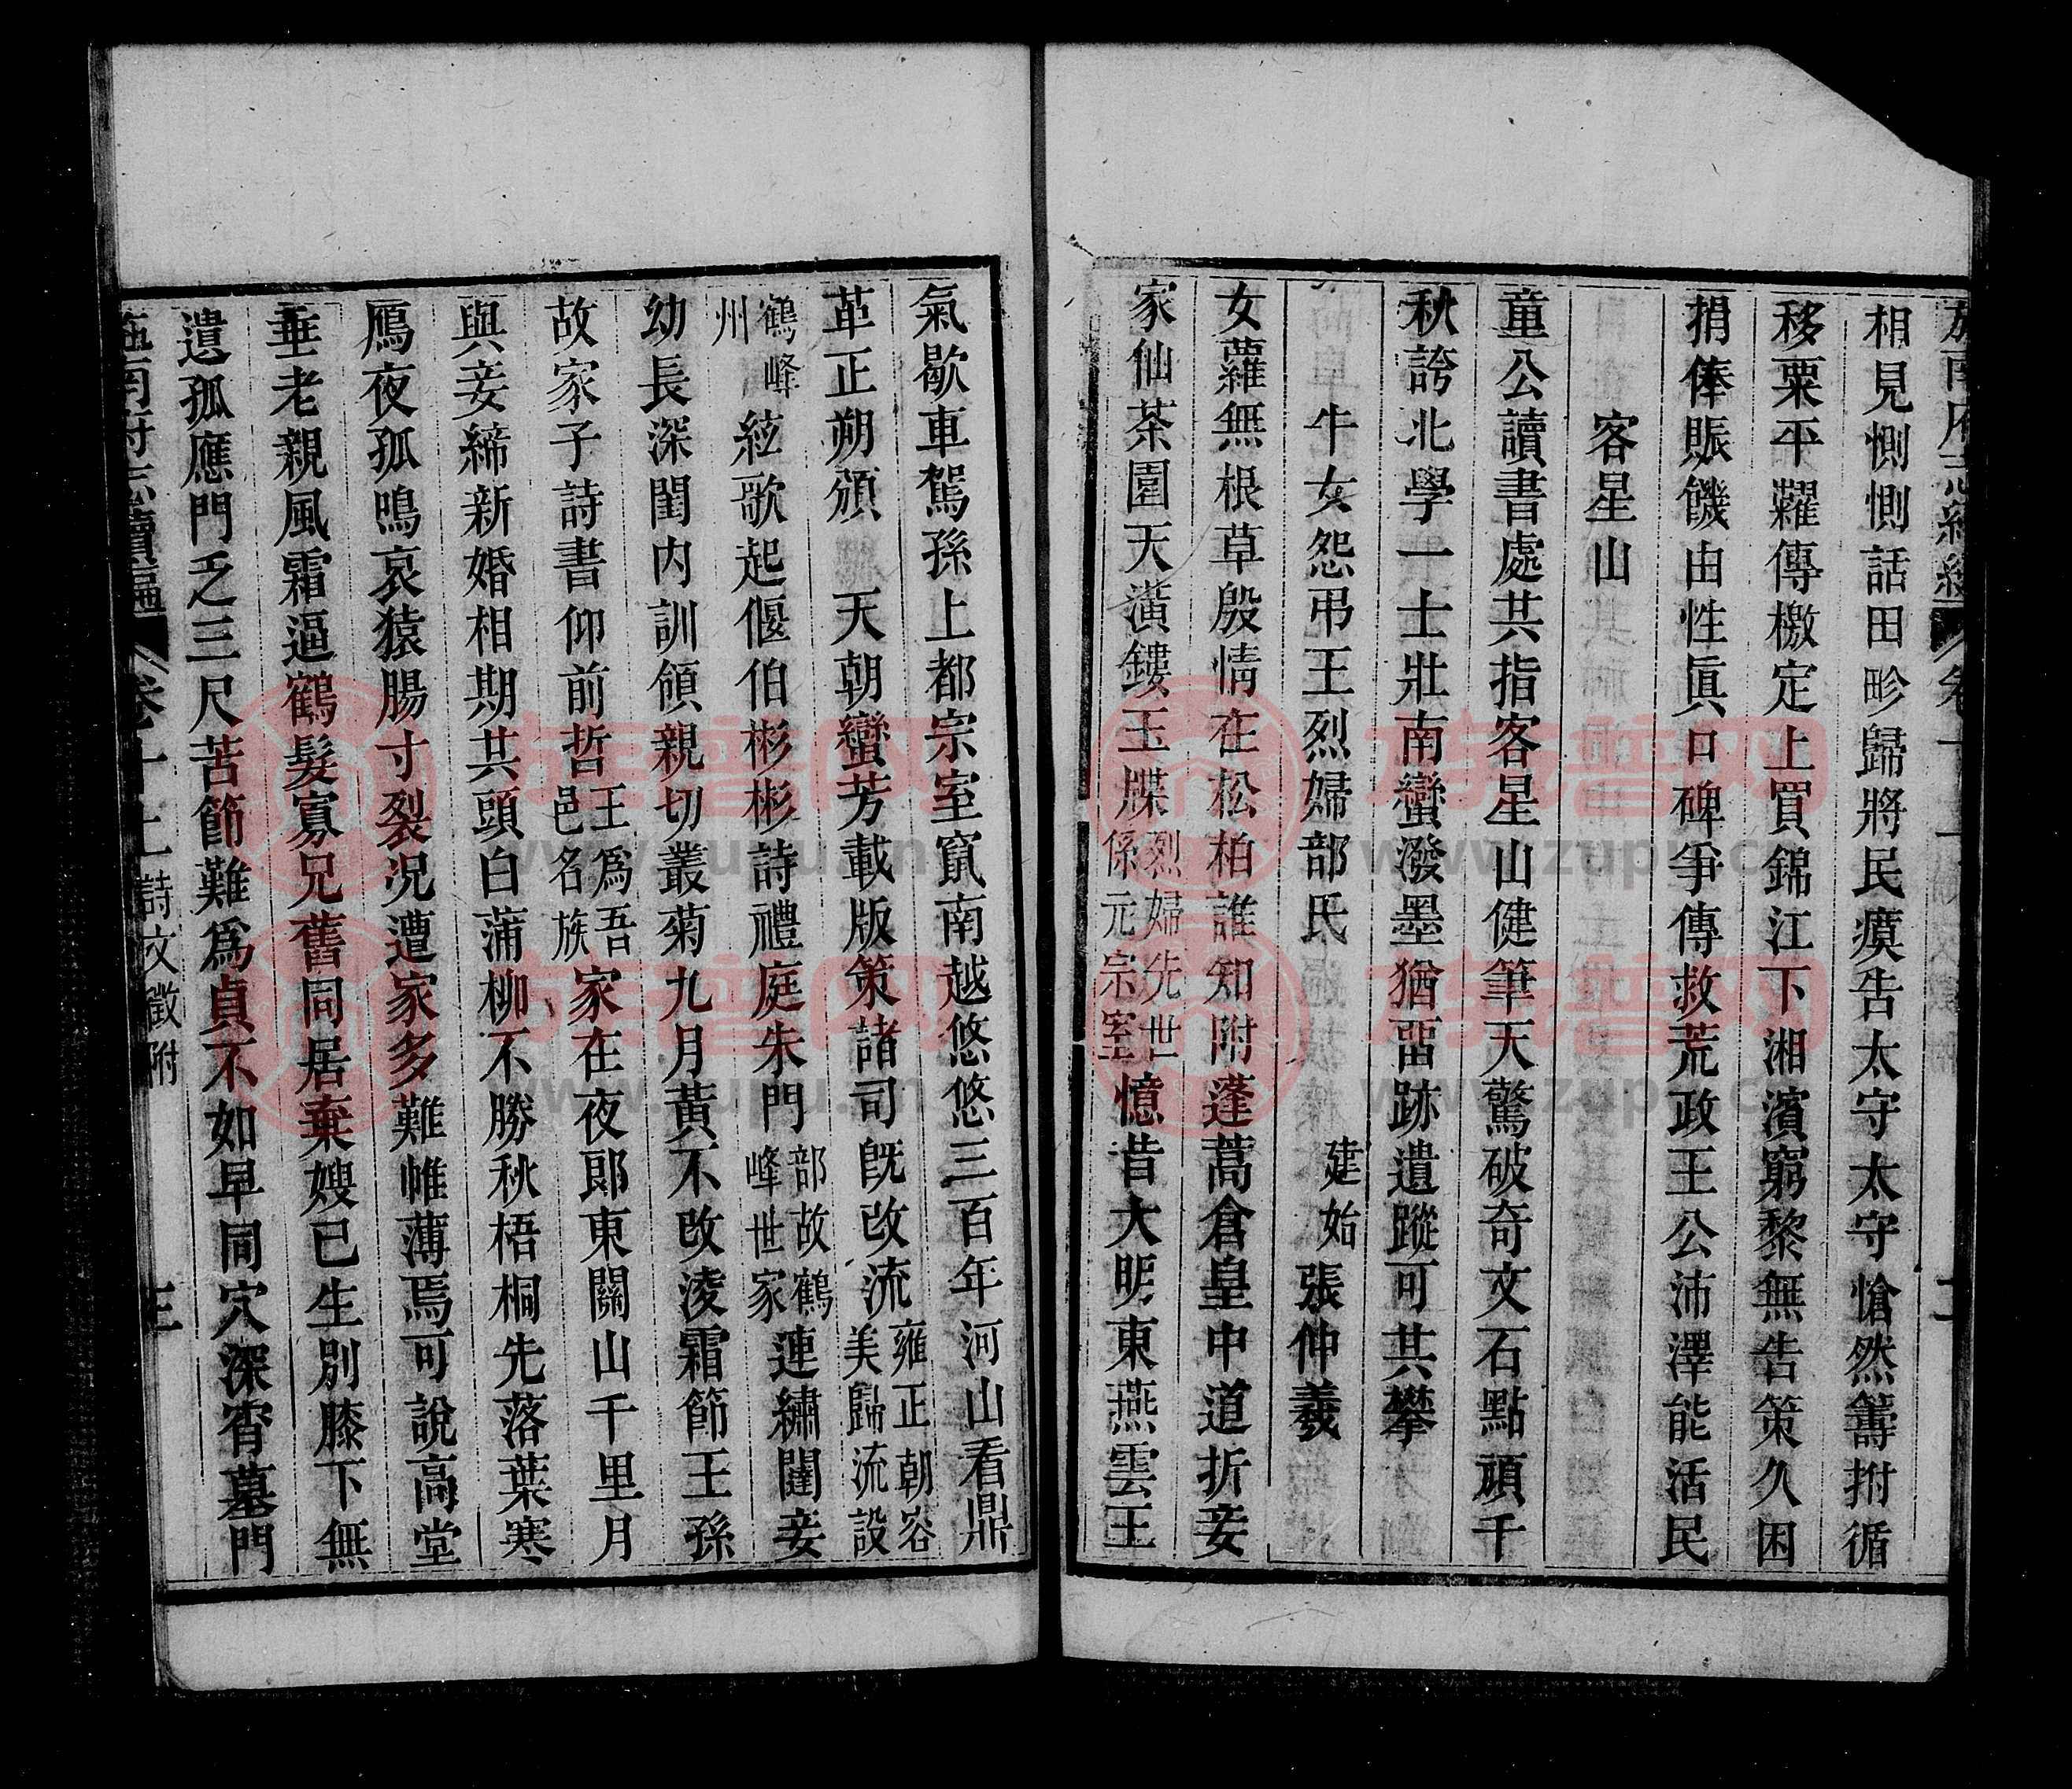 相見惻惻話田畛歸將民瘼告太守太守愴然籌拊循
移粟平糴傳檄定上買錦江下湘濱窮黎無告策久困
捐俸賑饑由性眞口碑爭傳救荒政王公沛澤能活民
客星山
童公讀書處共指客星山健筆天驚破奇文石點頑千
秋誇北學一士壯南蠻潑墨猶畱跡遺蹤可共攀
牛女怨弔王烈婦部氏 建始 張仲羲
女蘿無根草殷情在松柏誰知附蓬蒿倉皇中道折妾
家仙茶園天潢鏤玉牒烈婦先世係元宗室憶昔大明東燕雲王
氣歇車駕孫上都宗室竄南越悠悠三百年河山看鼎
革正朔頒 天朝蠻芳載版策諸司旣改流雍正朝容美歸流設
鶴峰州絃歌起偃伯彬彬詩禮庭朱門部故鶴峰世家連繡闥妾
幼長深閨內訓領親切叢菊九月黃不改淩霜節王孫
故家子詩書仰前哲王爲吾邑名族家在夜郎東關山千里月
與妾締新婚相期共頭白蒲柳不勝秋梧桐先落葉寒
鴈夜孤鳴哀猿腸寸裂況遭家多難帷薄焉可說高堂
垂老親風霜逼鶴髮寡兄舊同居棄嫂已生別膝下無
遺孤應門乏三尺苦節難爲貞不如早同穴深宵墓門
施南府志續編 卷十上 詩文徵附 三